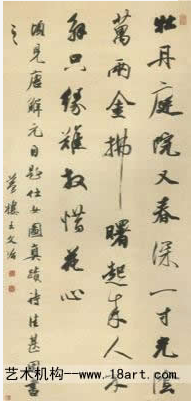 牡丹庭院又春深一寸光陰
萬兩金拂曙起來人不
解只緣難放惜花心
頃見唐解元自題仕女圖真蹟詩佳甚因書
之 夢樓王文治
艺术机构-----www.18art.com